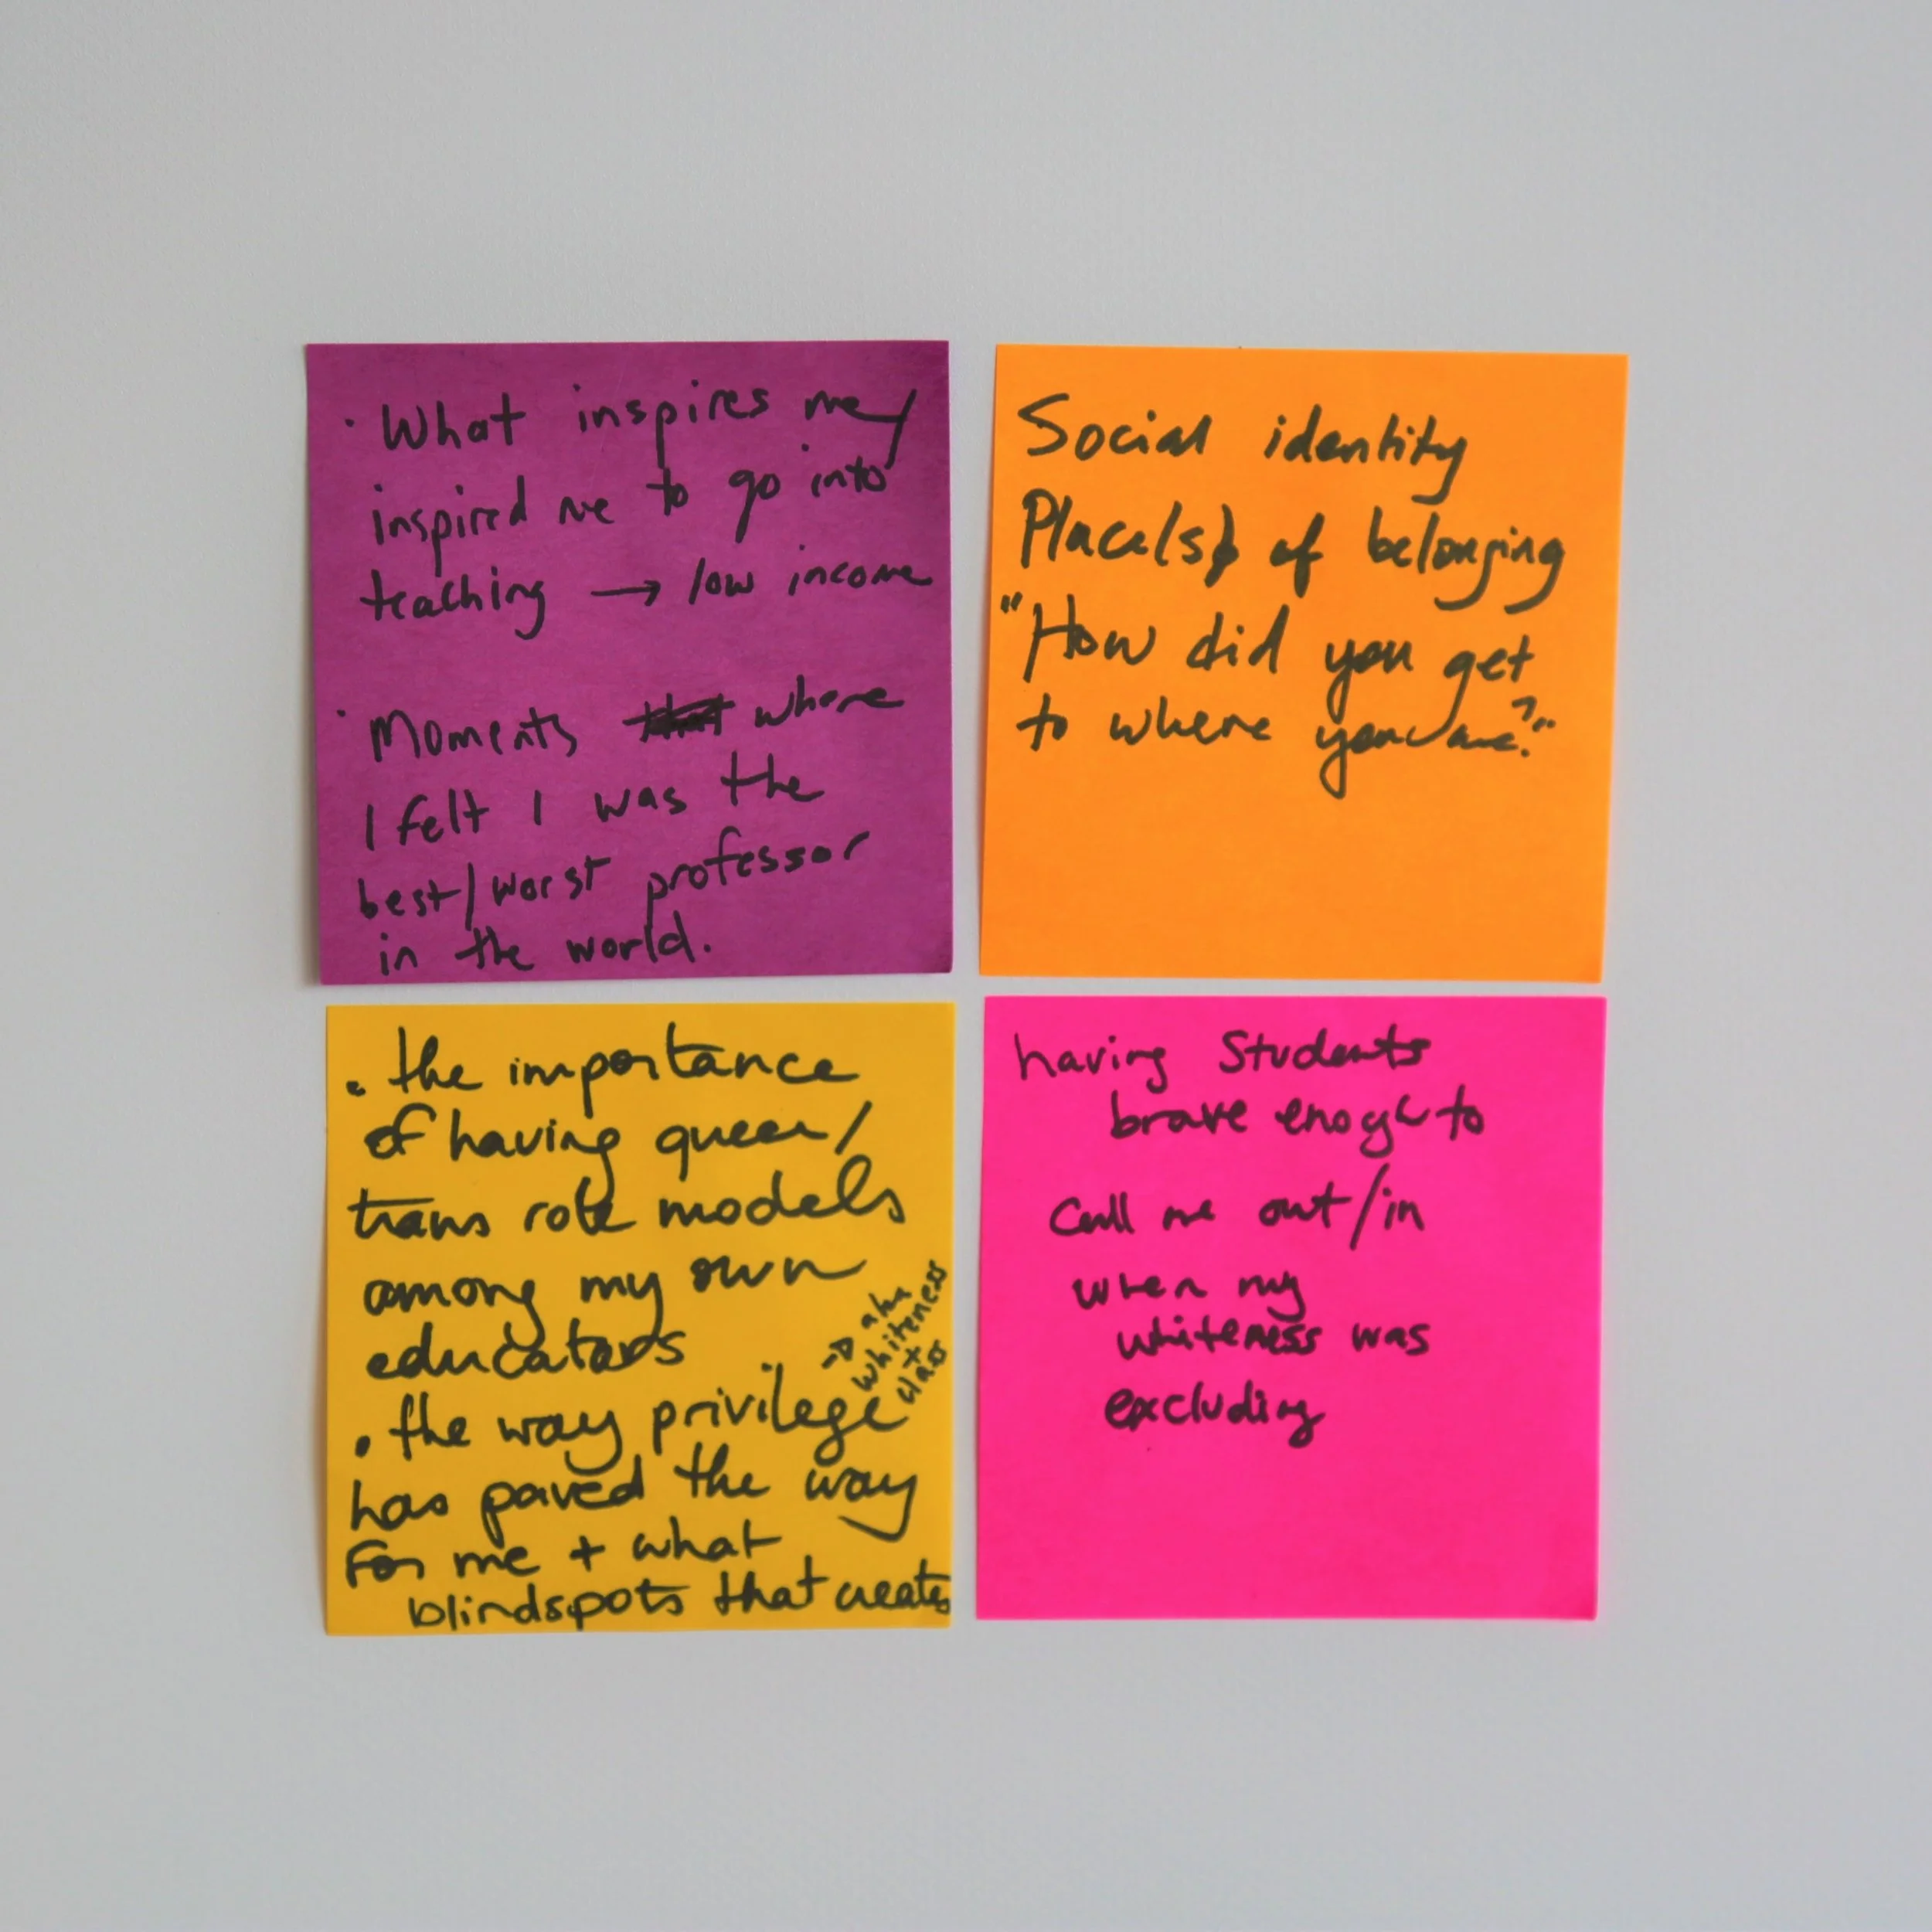 · What inspires me/
inspired me to go into
teaching → low income
· Moments where
I felt I was the
best/worst professor
in the world.
Social identity
Place(s) of belonging
"How did you get
to where you are?"
• the importance
of having queer/
trans role models
among my own
educators
• the way privilege
→ aka
whiteness
+
class
has paved the way
for me + what
blindspots that creates
having Students
brave enogh to
call me out/in
when my
whiteness was
excluding